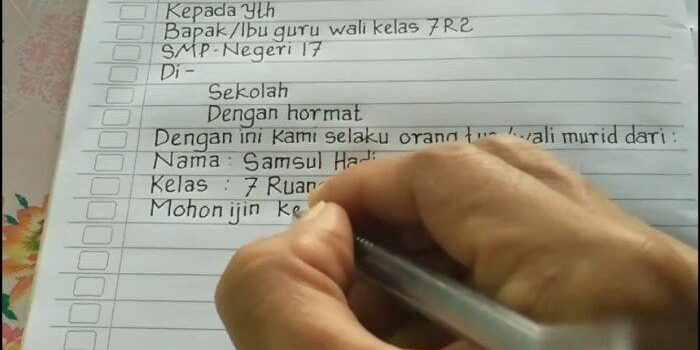 Kepada Yth
Bapak/Ibu guru wali kelas 7R2
SMP-Negeri 17
Di -
Sekolah
Dengan hormat
Dengan ini Kami selaku orang tua/wali murid dari :
Nama : Samsul Hadi
Kelas : 7 Ruang
Mohon ijin Ke